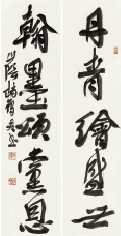 丹青繪盛世
翰墨頌黨恩